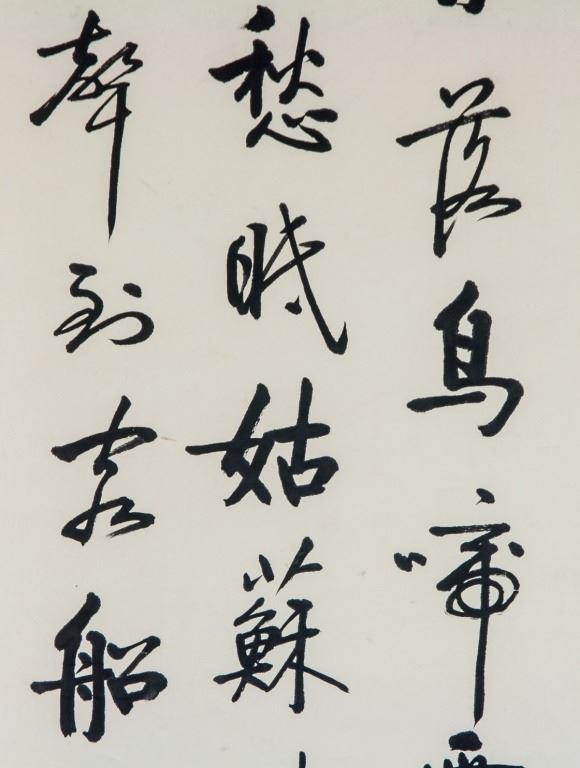 落烏啼
愁眠姑蘇
聲到客船